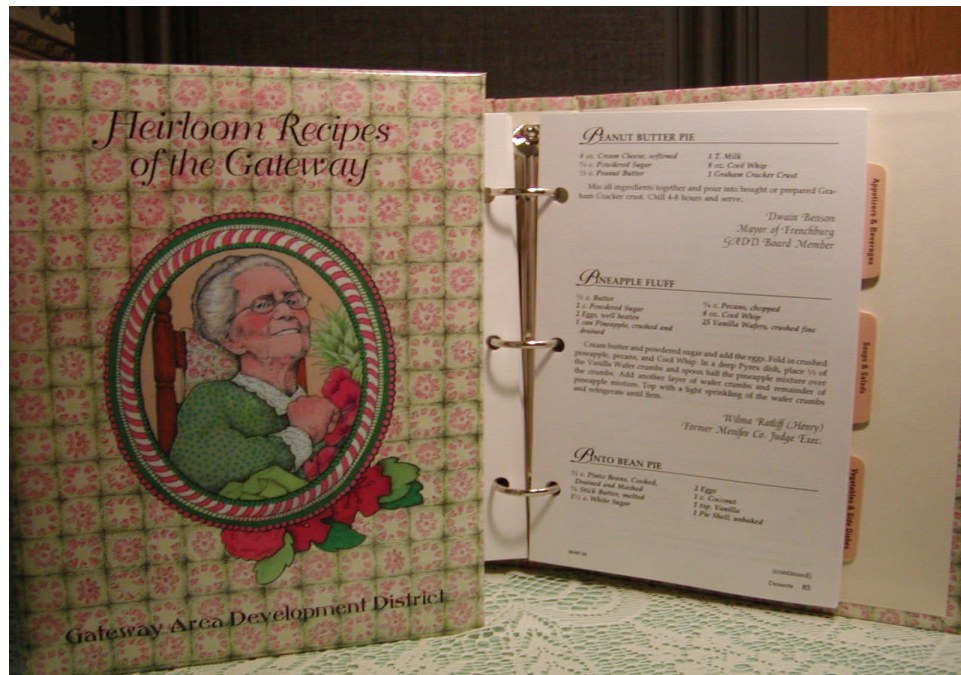 Heirloom Recipes
of the Gateway
Gateway Area Development District
PEANUT BUTTER PIE
8 oz. Cream Cheese, softened
c. Powdered Sugar
c. Peanut Butter
1 T. Milk
8 oz. Cool Whip
1 Graham Cracker Crust
Mix all ingredients together and pour into bought or prepared Gra-
ham Cracker crust. Chill 4-8 hours and serve.
Dwain Benson
Mayor of Frenchburg
GADD Board Member
PINEAPPLE FLUFF
½ c. Butter
2 c. Powdered Sugar
2 Eggs, well beaten
1 can Pineapple, crushed and
drained
c. Pecans, chopped
8 oz. Cool Whip
25 Vanilla Wafers, crushed fine
Cream butter and powdered sugar and add the eggs. Fold in crushed
pineapple, pecans, and Cool Whip. In a deep Pyrex dish, place of
the Vanilla Wafer crumbs and spoon half the pineapple mixture over
the crumbs. Add another layer of wafer crumbs and remainder of
pineapple mixture. Top with a light sprinkling of the wafer crumbs
and refrigerate until firm.
Wilma Ratliff (Henry)
Former Menifee Co. Judge Exec.
PINTO BEAN PIE
c. Pinto Beans, Cooked,
Drained and Mashed
Stick Butter, melted
c. White Sugar
2 Eggs
1 c. Coconut
1 tsp. Vanilla
1 Pie Shell, unbaked
(continued)
Desserts 85
Appetizers & Beverages
Soups & Salads
Vegetables & Side Dishes